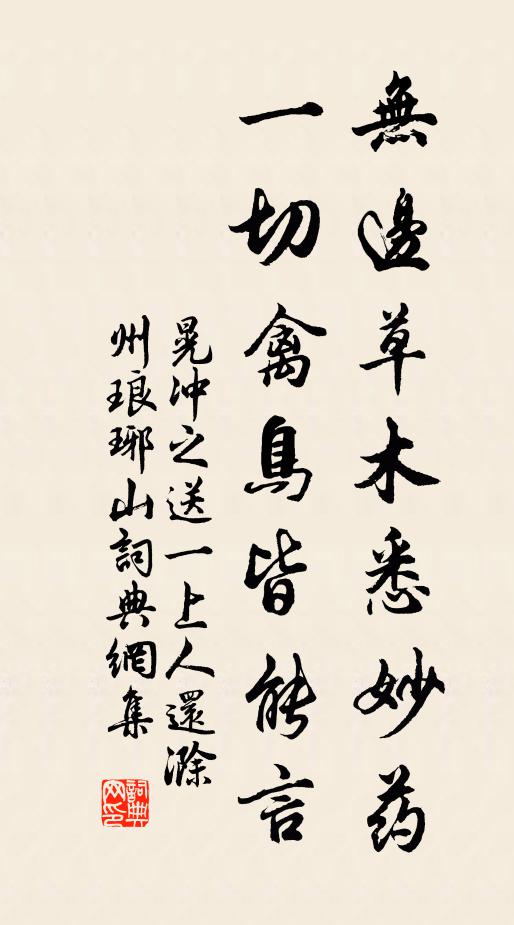 無邊草木悉妙药
一切禽鳥皆能言
晃冲之送一上人還滁
州琅琊山詞典網集
詞典网印